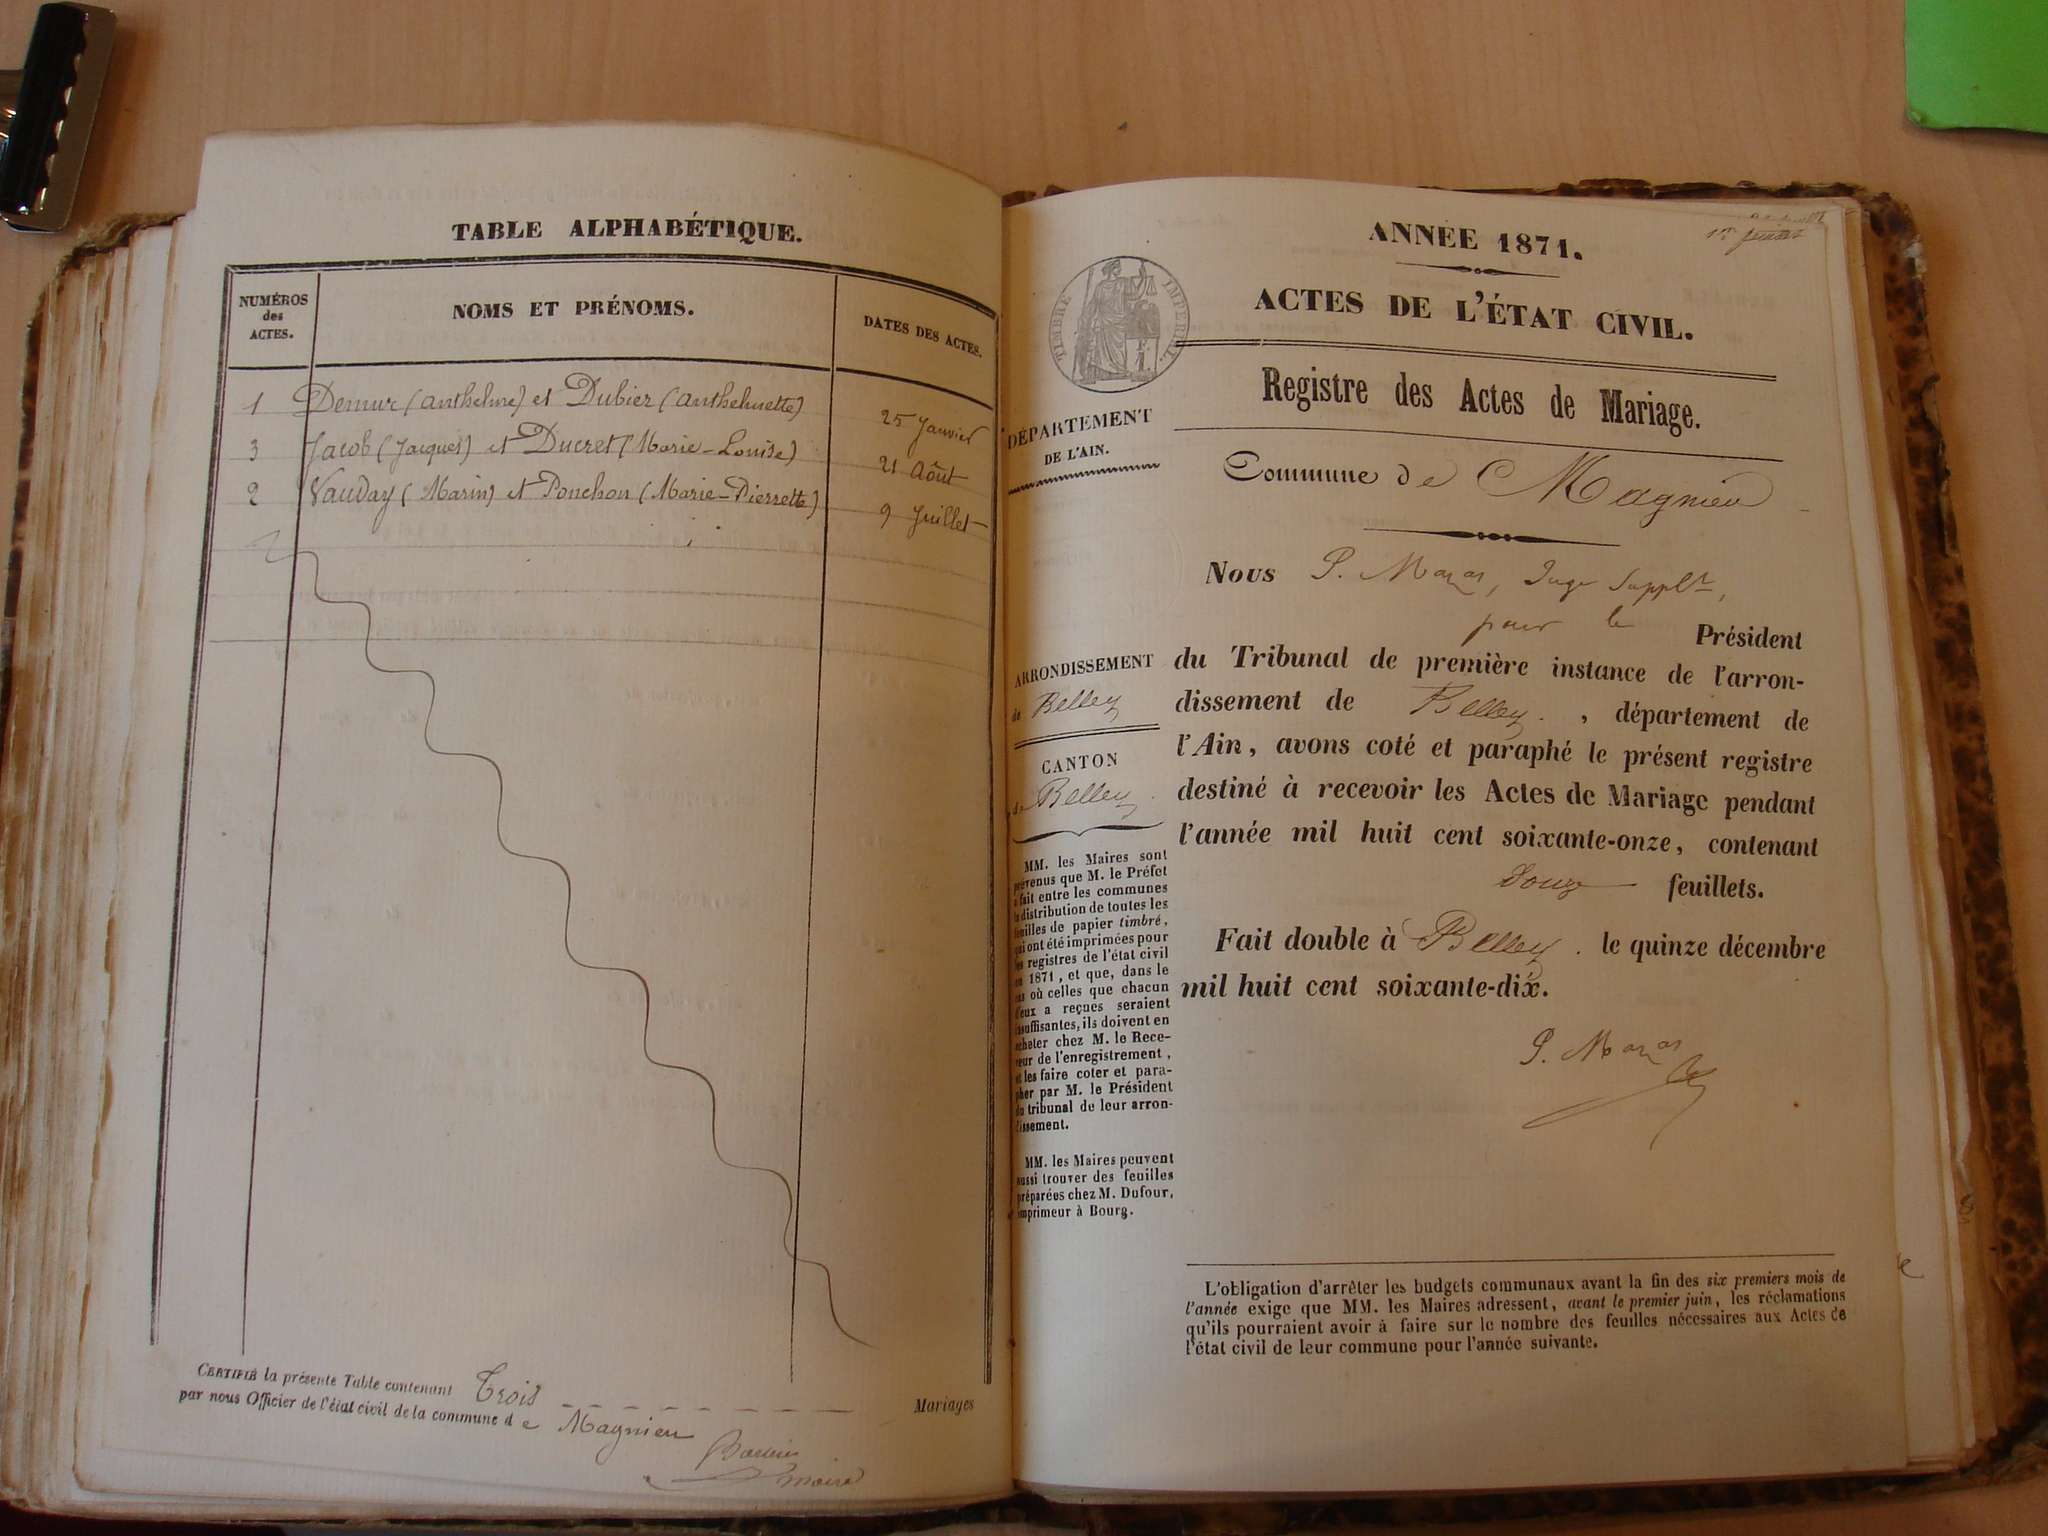 TABLE ALPHABÉTIQUE.
NUMÉROS
des
ACTES.
NOMS ET PRÉNOMS.
DATES DES ACTES.
1 Demur (Anthelme) et Dubier (Anthelmette) 25 Janvier
3 Jacob (Jacques) et Ducret (Marie-Louise) 21 Août
2 Vauday (Marin) et Ponchon (Marie-Pierrette) 9 Juillet
CERTIFIÉ la présente Table contenant Trois Mariages
par nous Officier de l'état civil de la commune de Magnieu
maire
ANNÉE 1871.
ACTES DE L'ÉTAT CIVIL.
TIMBRE IMPÉRIAL.
Registre des Actes de Mariage.
DÉPARTEMENT
DE L'AIN.
Commune de Magnieu
Nous P. Mazas, Juge Supplt,
pour le Président
du Tribunal de première instance de l'arron-
dissement de Belley. , département de
l'Ain, avons coté et paraphé le présent registre
destiné à recevoir les Actes de Mariage pendant
l'année mil huit cent soixante-onze, contenant
douze feuillets.
Fait double à Belley. le quinze décembre
mil huit cent soixante-dix.
P. Mazas
ARRONDISSEMENT
de Belley
CANTON
de Belley.
MM. les Maires sont
prévenus que M. le Préfet
a fait entre les communes
la distribution de toutes les
feuilles de papier timbré,
qui ont été imprimées pour
les registres de l'état civil
en 1871, et que, dans le
cas où celles que chacun
d'eux a reçues seraient
insuffisantes, ils doivent en
acheter chez M. le Rece-
veur de l'enregistrement,
et les faire coter et para-
pher par M. le Président
du tribunal de leur arron-
dissement.
MM. les Maires peuvent
aussi trouver des feuilles
préparées chez M. Dufour,
imprimeur à Bourg.
L'obligation d'arrêter les budgets communaux avant la fin des six premiers mois de
l'année exige que MM. les Maires adressent, avant le premier juin, les réclamations
qu'ils pourraient avoir à faire sur le nombre des feuilles nécessaires aux Actes de
l'état civil de leur commune pour l'année suivante.